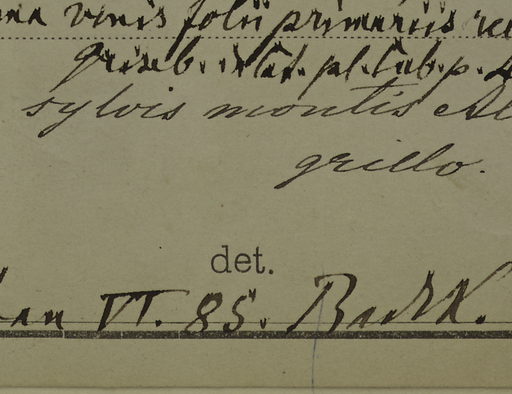 venis folii primariis
Griseb. in Cat. pl. Cub. p.
sylvis montis Al
grillo.
det.
an VI. 85.